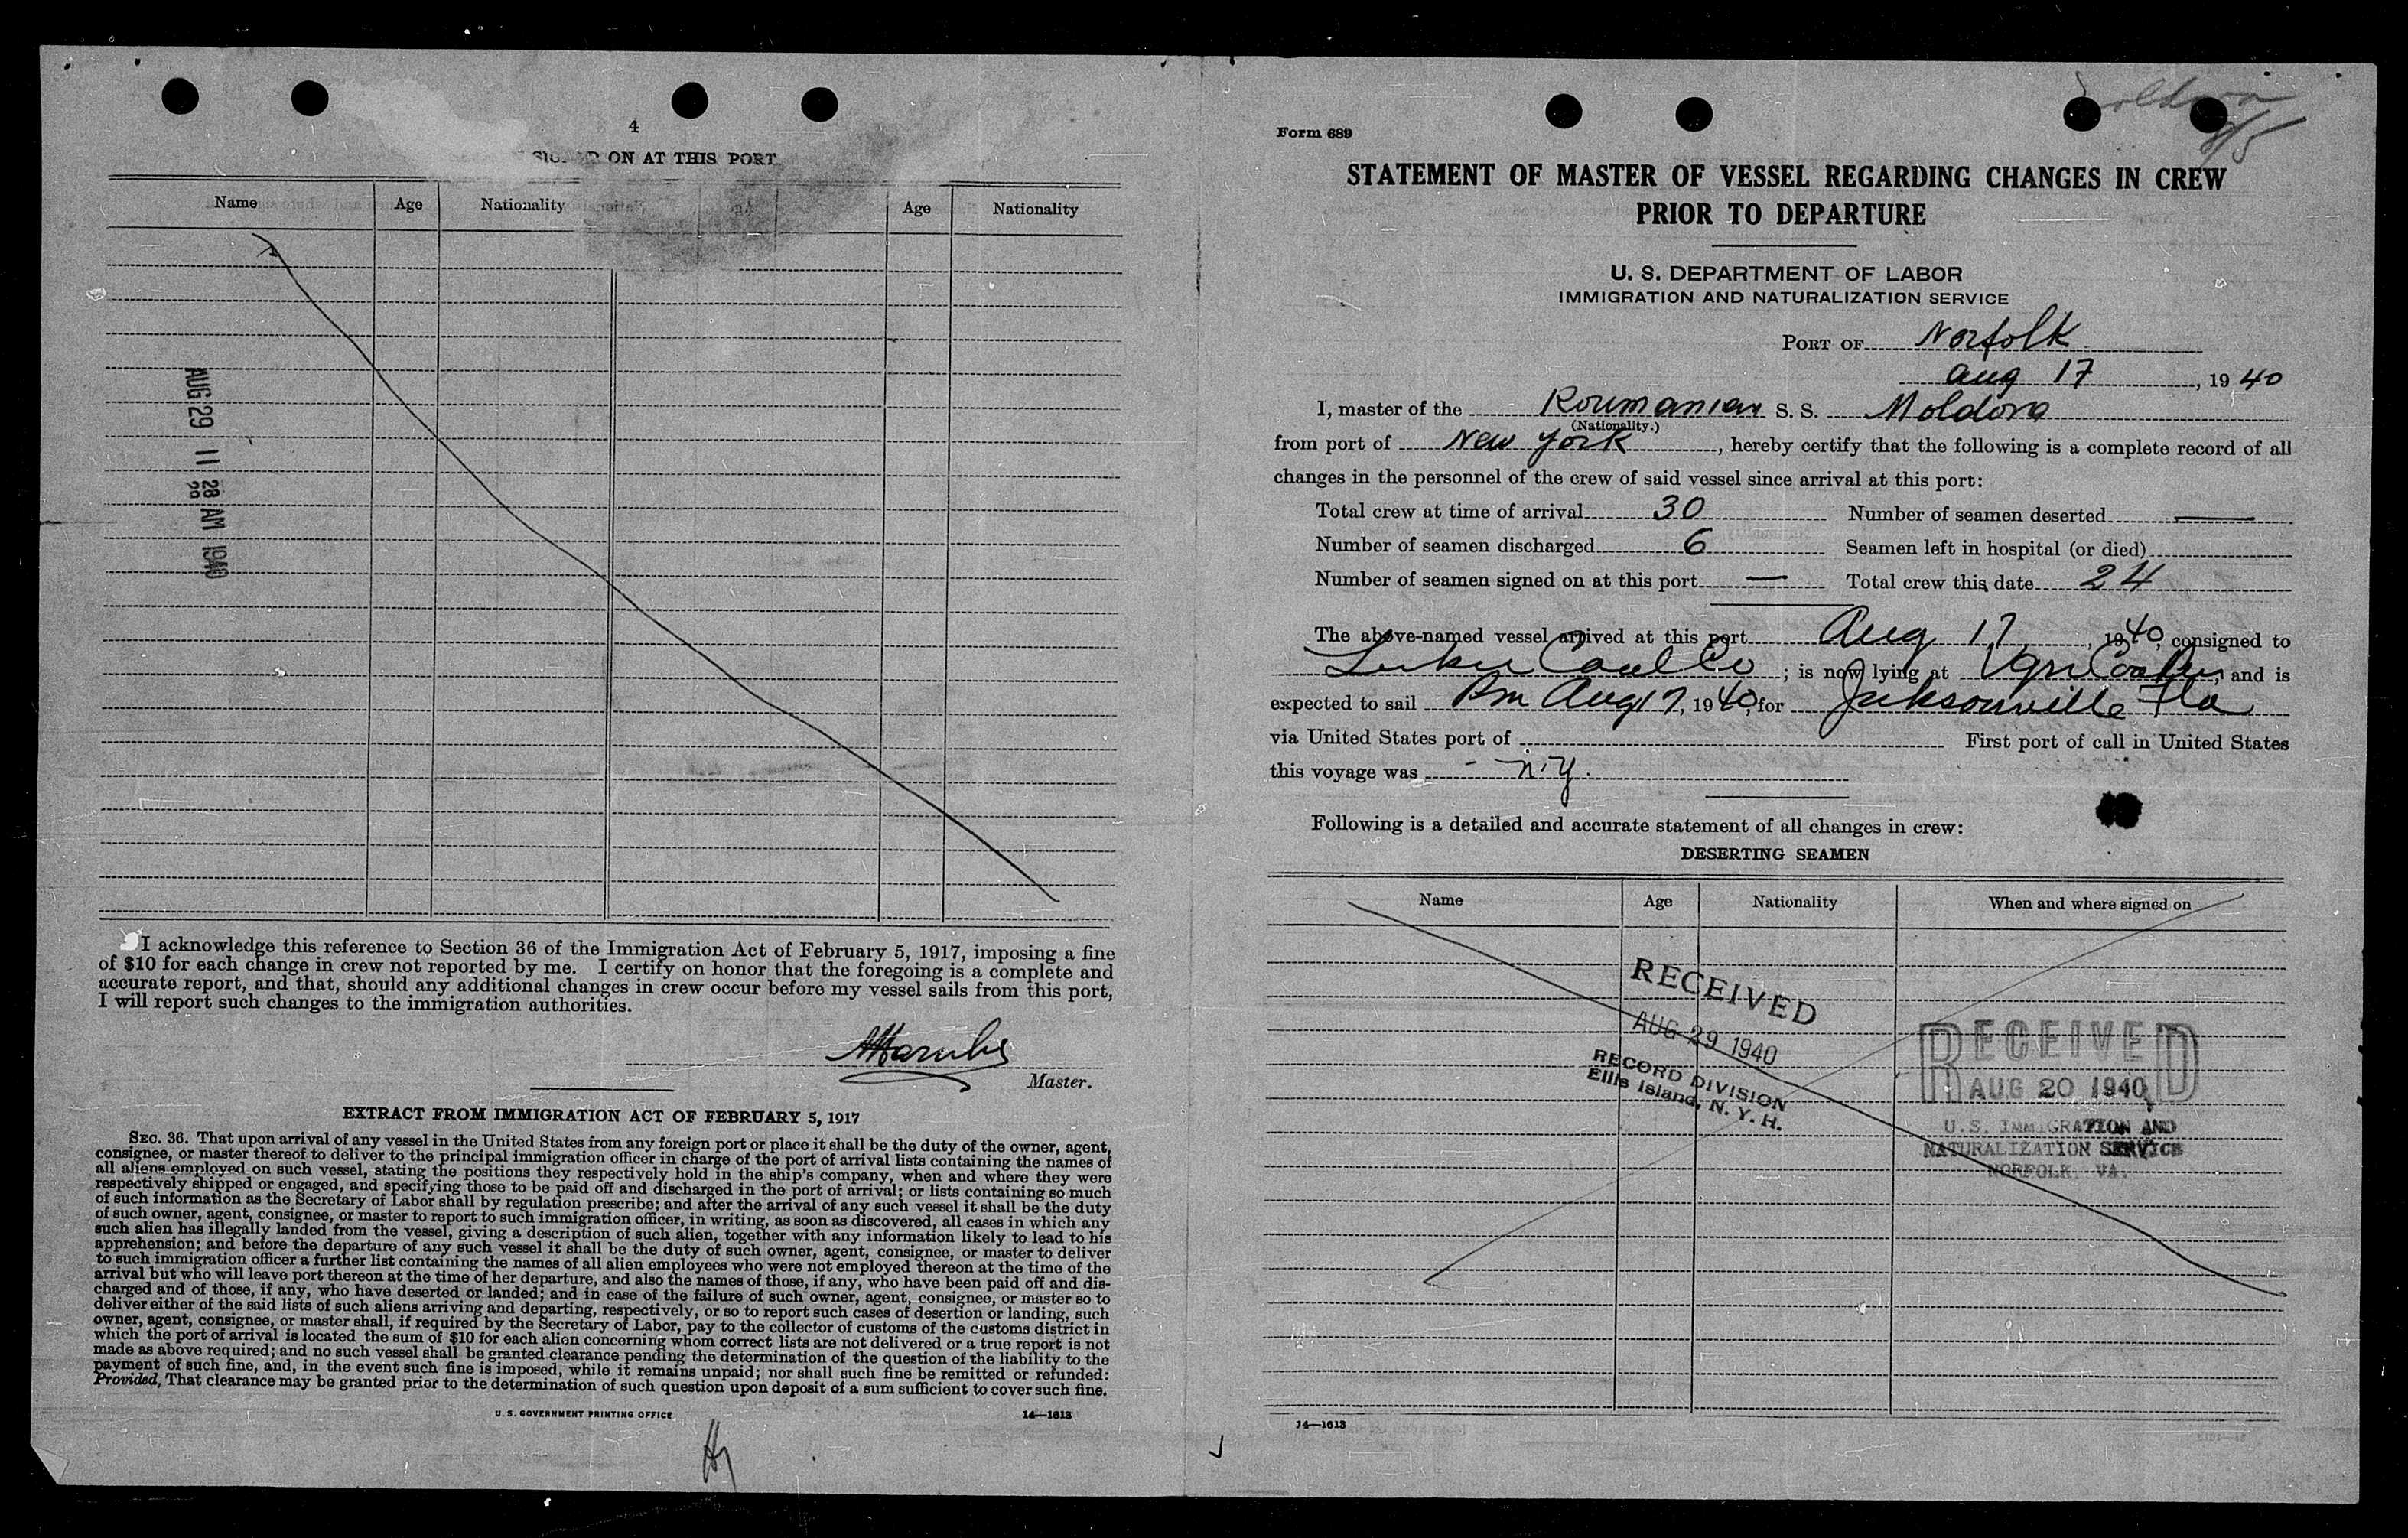 4
ON AT THIS PORT
Name Age Nationality Age Nationality
AUG 29 11 28 AM 1940
I acknowledge this reference to Section 36 of the Immigration Act of February 5, 1917, imposing a fine
of $10 for each change in crew not reported by me. I certify on honor that the foregoing is a complete and
accurate report, and that, should any additional changes in crew occur before my vessel sails from this port,
I will report such changes to the immigration authorities.
Master.
EXTRACT FROM IMMIGRATION ACT OF FEBRUARY 5, 1917
SEC. 36. That upon arrival of any vessel in the United States from any foreign port or place it shall be the duty of the owner, agent,
consignee, or master thereof to deliver to the principal immigration officer in charge of the port of arrival lists containing the names of
all aliens employed on such vessel, stating the positions they respectively hold in the ship's company, when and where they were
respectively shipped or engaged, and specifying those to be paid off and discharged in the port of arrival; or lists containing so much
of such information as the Secretary of Labor shall by regulation prescribe; and after the arrival of any such vessel it shall be the duty
of such owner, agent, consignee, or master to report to such immigration officer, in writing, as soon as discovered, all cases in which any
such alien has illegally landed from the vessel, giving a description of such alien, together with any information likely to lead to his
apprehension; and before the departure of any such vessel it shall be the duty of such owner, agent, consignee, or master to deliver
to such immigration officer a further list containing the names of all alien employees who were not employed thereon at the time of the
arrival but who will leave port thereon at the time of her departure, and also the names of those, if any, who have been paid off and dis-
charged and of those, if any, who have deserted or landed; and in case of the failure of such owner, agent, consignee, or master so to
deliver either of the said lists of such aliens arriving and departing, respectively, or so to report such cases of desertion or landing, such
owner, agent, consignee, or master shall, if required by the Secretary of Labor, pay to the collector of customs of the customs district in
which the port of arrival is located the sum of $10 for each alien concerning whom correct lists are not delivered or a true report is not
made as above required; and no such vessel shall be granted clearance pending the determination of the question of the liability to the
payment of such fine, and, in the event such fine is imposed, while it remains unpaid; nor shall such fine be remitted or refunded:
Provided, That clearance may be granted prior to the determination of such question upon deposit of a sum sufficient to cover such fine.
U. S. GOVERNMENT PRINTING OFFICE 14—1613
Form 689
STATEMENT OF MASTER OF VESSEL REGARDING CHANGES IN CREW
PRIOR TO DEPARTURE
U. S. DEPARTMENT OF LABOR
IMMIGRATION AND NATURALIZATION SERVICE
PORT OF Norfolk
Aug 17, 1940
I, master of the Roumanian S. S. Moldova
(Nationality.)
from port of New York, hereby certify that the following is a complete record of all
changes in the personnel of the crew of said vessel since arrival at this port:
Total crew at time of arrival 30 Number of seamen deserted —
Number of seamen discharged 6 Seamen left in hospital (or died)
Number of seamen signed on at this port — Total crew this date 24
The above-named vessel arrived at this port Aug 17, 1940, consigned to
Coal Co; is now lying at and is
expected to sail Pm Aug 17, 1940, for Jacksonville Fla
via United States port of First port of call in United States
this voyage was - N.Y.
Following is a detailed and accurate statement of all changes in crew:
DESERTING SEAMEN
Name Age Nationality When and where signed on
RECEIVED
AUG 29 1940
RECORD DIVISION
Ellis Island, N. Y. H.
RECEIVED
AUG 20 1940
U.S. IMMIGRATION AND
NATURALIZATION SERVICE
NORFOLK, VA.
14—1613